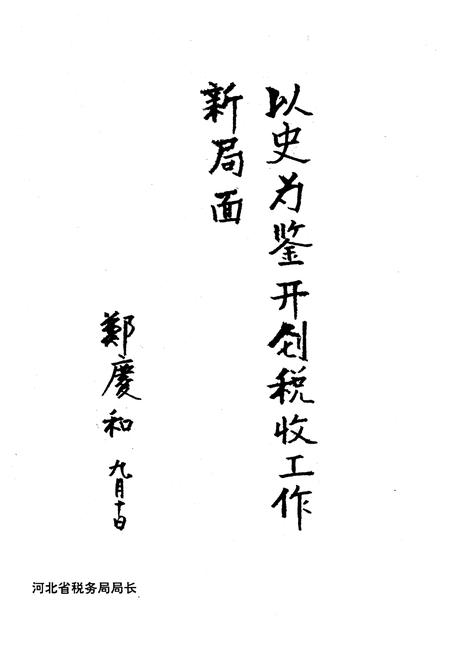 以史为鉴开创税收工作
新局面
鄭慶和 九月十日
河北省税务局局长